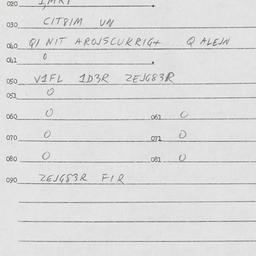 020
030 CIT8IM UN
040 QI NIT AROJSCUKRIG+ Q ALEJN
041 0
050 V1FL 1D3R ZEJG83R
051 0
060 0 061 0
070 0 071 0
080 0 081 0
090 ZEJG83R FIR